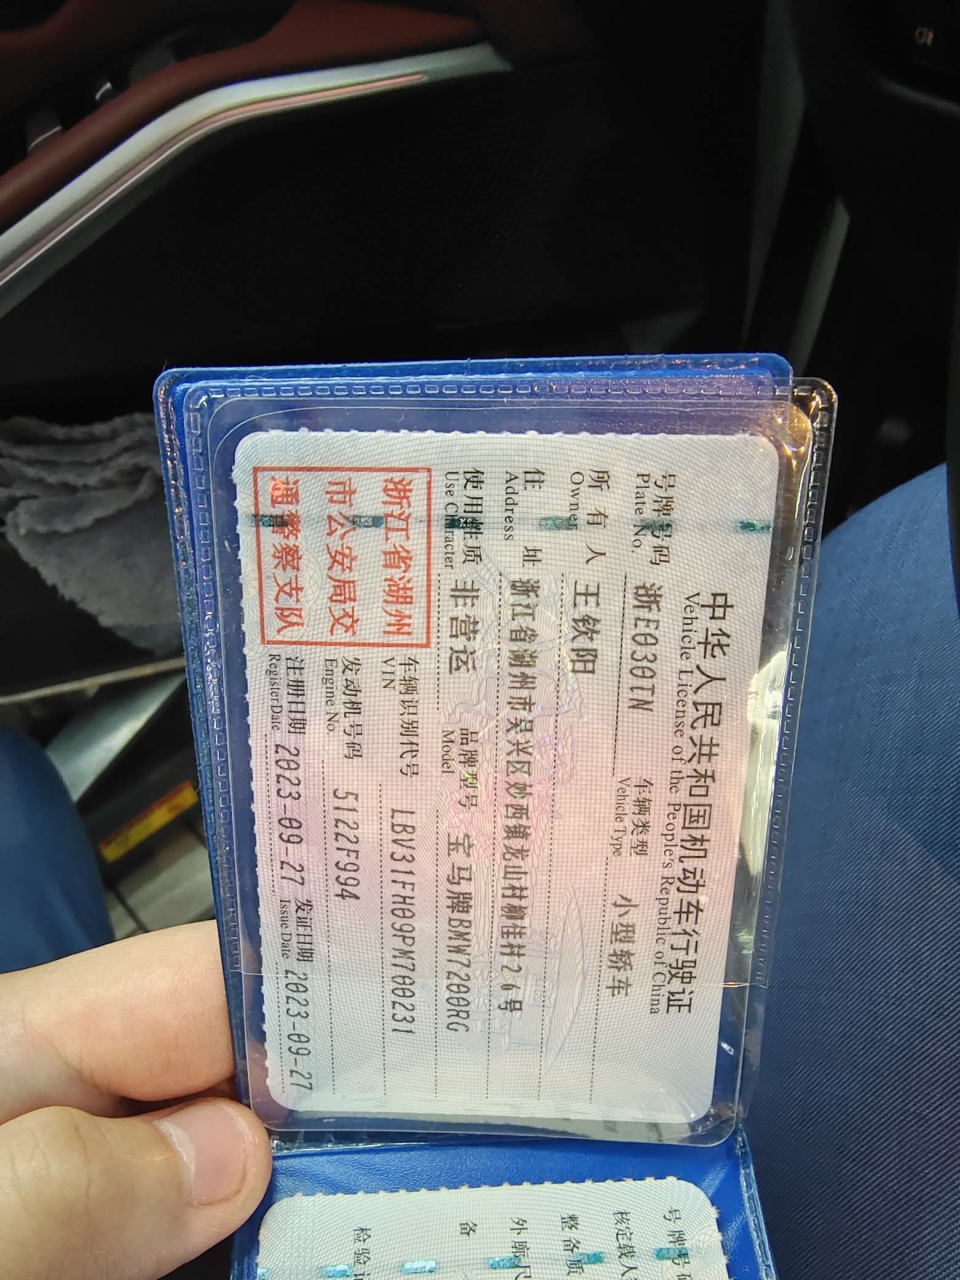 中华人民共和国机动车行驶证
Vehicle License of the People's Republic of China
号牌号码 浙E030TN 车辆类型 小型轿车
Plate No. Vehicle Type
所有人 王钦阳
Owner
住址 浙江省湖州市吴兴区妙西镇龙山村柳佳村26号
Address
使用性质 非营运 品牌型号 宝马牌BMW7200RG
Use Character Model
浙江省湖州
市公安局交
通警察支队
车辆识别代号 LBV31FH09PM700231
VIN
发动机号码 5122F994
Engine No.
注册日期 2023-09-27 发证日期 2023-09-27
Register Date Issue Date
号牌号码
核定载人
整备质
外廓尺
备
检验